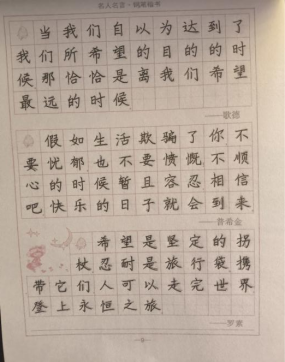 名人名言·钢笔临书
当我们自以为达到了
我们所希望的目的的时
候那恰恰是离我们希望
最远的时候
——歌德
假如生活欺骗了你不
要忧郁也不要愤慨不顺
心的时候暂且容忍相信
吧快乐的日子就会到来
——普希金
希望是坚定的拐
杖忍耐是旅行袋携
带它们人可以走完世界
登上永恒之旅
——罗素